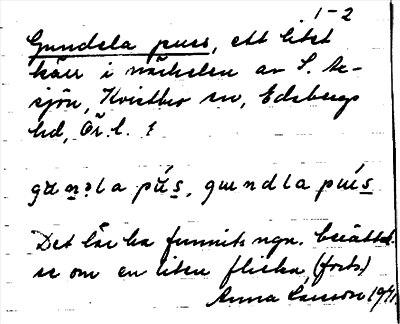 1-2
Gundela puss, ett litet
kärr i närheten av S. Ac-
sjön, Kvistbro sn, Edsbergs
hd, Ör. l.
gundla pus
Det lär ha funnits ngn. berättel-
se om en liten flicka (forts.)
Anna Larsson 1941